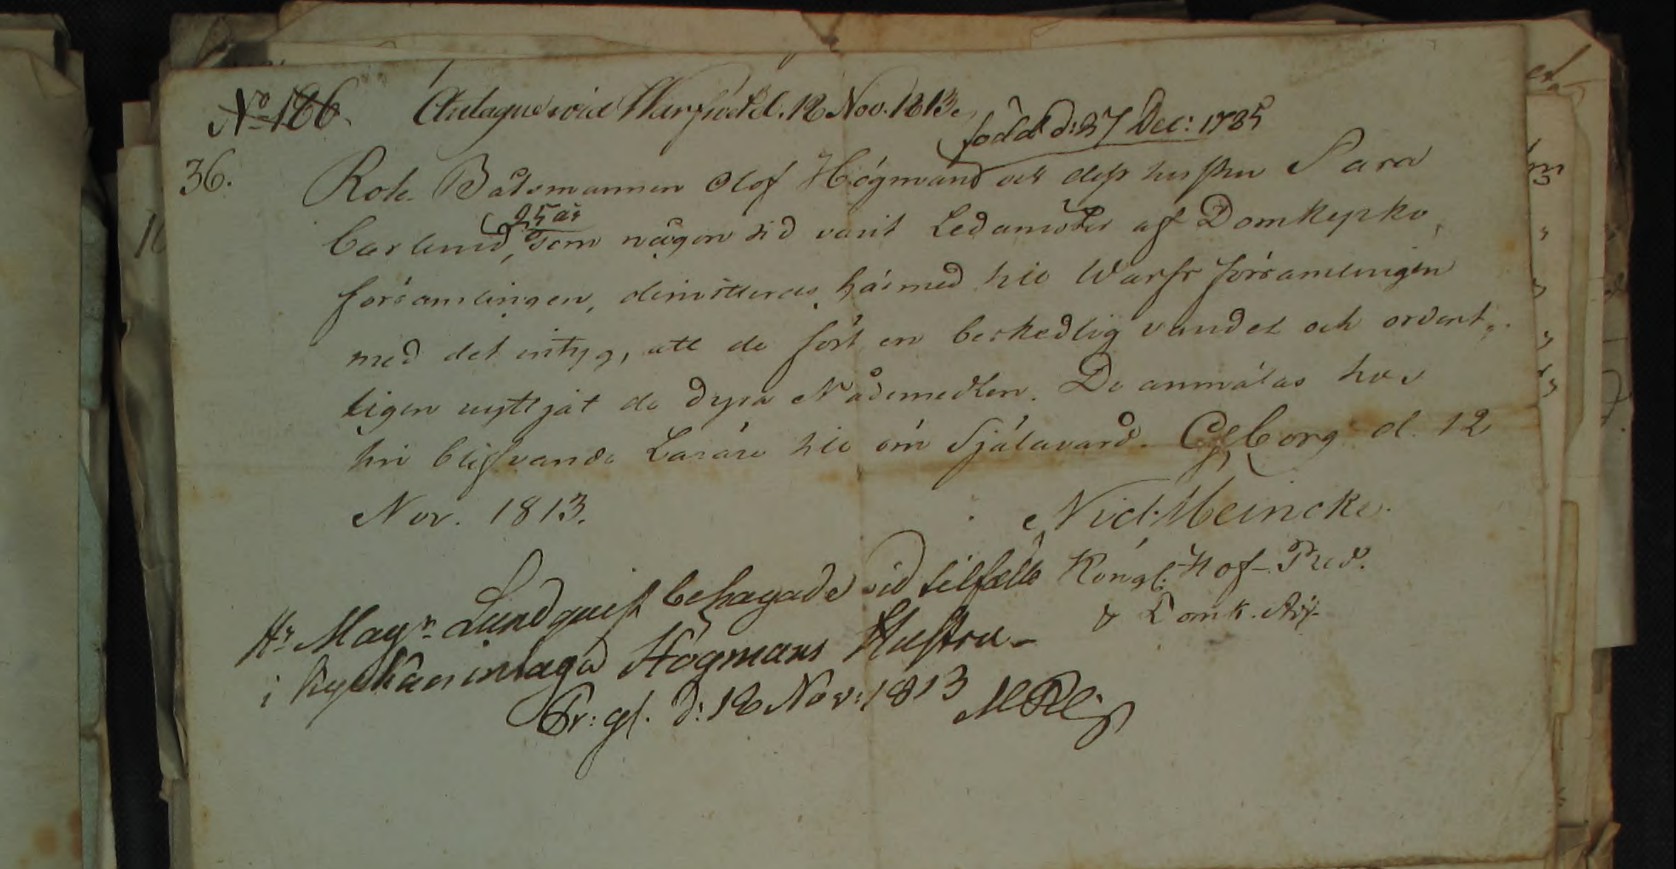 No 186. Antagne vid Warfvet d. 18 Nov. 1813.
född d: 27 Dec: 1785
36. Rote Båtsmannen Olof Högmand och dess hustru Sara
25 år
Carlund, som någon tid varit Ledamöter af Domkyrko
församlingen, dimitteras härmed til Warfs församlingen
med det intyg, att de fört en beskedlig vandel och ordent-
ligen nyttjat de dyra Nådemedlen. De anmälas hos
sin blifvande Lärare til öm Själavård. Gborg d. 12
Nov. 1813.
Nicl. Meincke.
Kongl. Hof-Pred.
& Domk. Adj.
Hr Mag:r Lundquist behagade vid tilfälle
i kyrkan intaga Högmans Hustru
Gbg. d: 18 Nov: 1813